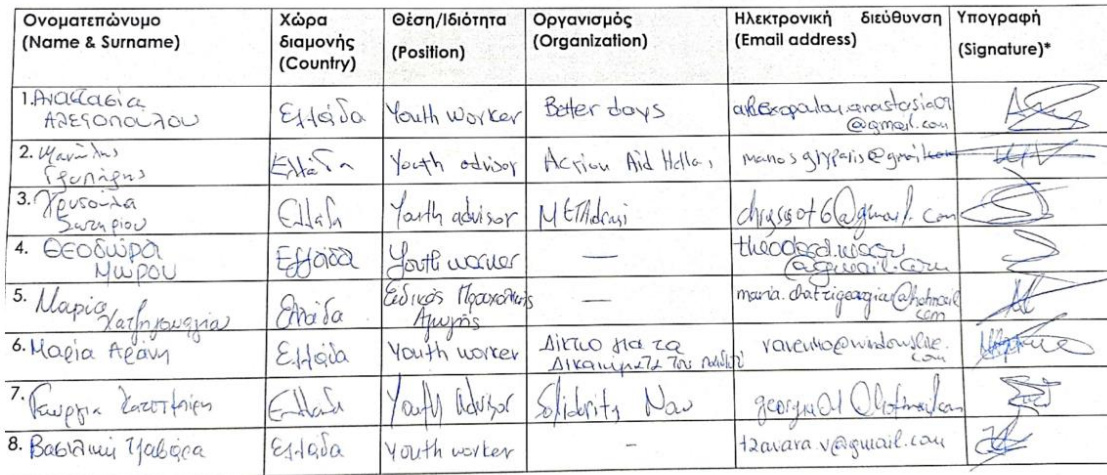 Ονοματεπώνυμο (Name & Surname) Χώρα διαμονής (Country) Θέση/Ιδιότητα (Position) Οργανισμός (Organization) Ηλεκτρονική διεύθυνση (Email address) Υπογραφή (Signature)*
1. Αναστασία Αλεξοπούλου Ελλάδα Youth worker Better days @gmail.com
2. Μανώλης Γρυπάρης Ελλάδα Youth advisor Action Aid Hellas manos gryparis@gmail.com
3. Χρυσούλα Σωτηρίου Ελλάδα Youth advisor METAdrasi chryssot6@gmail.com
4. Θεοδώρα Μώρου Ελλάδα Youth worker — @gmail.com
5. Μαρία Χατζηγεωργίου Ελλάδα Ειδικός Προσχολικής Αγωγής — maria.chatzigeorgiou@hotmail.com
6. Μαρία Αράνη Ελλάδα Youth worker Δίκτυο για τα Δικαιώματα του παιδιού
7. Γεωργία Ελλάδα Youth Advisor Solidarity Now
8. Βασιλική Τζαβάρα Ελλάδα Youth worker - tzavara.v@gmail.com